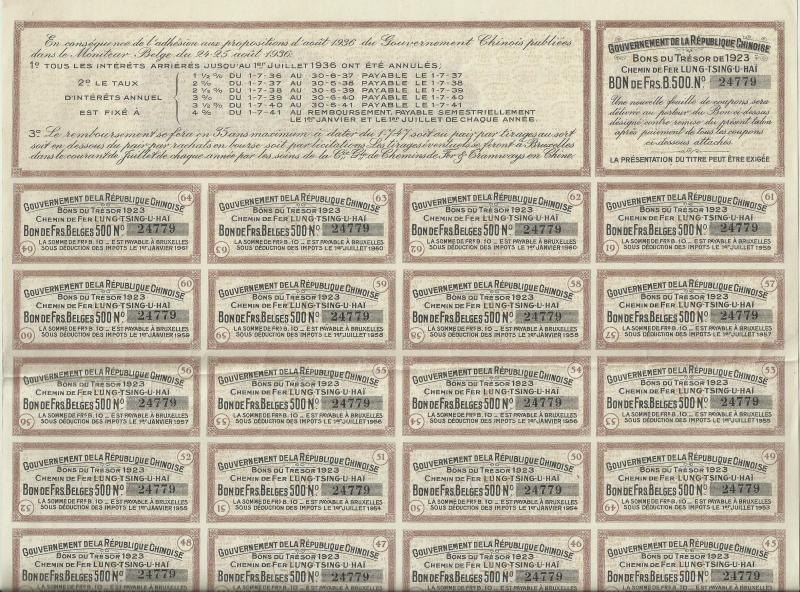 En conséquence de l'adhésion aux propositions d'août 1936 du Gouvernement Chinois publiées
dans le Moniteur Belge du 24-25 août 1936:
1º TOUS LES INTÉRÊTS ARRIÉRÉS JUSQU'AU 1ER JUILLET 1936 ONT ÉTÉ ANNULÉS;
2º LE TAUX
D'INTÉRÊTS ANNUEL
EST FIXÉ À
1 ½ % DU 1-7-36 AU 30-6-37 PAYABLE LE 1-7-37
2 % DU 1-7-37 AU 30-6-38 PAYABLE LE 1-7-38
2 ½ % DU 1-7-38 AU 30-6-39 PAYABLE LE 1-7-39
3 % DU 1-7-39 AU 30-6-40 PAYABLE LE 1-7-40
3 ½ % DU 1-7-40 AU 30-6-41 PAYABLE LE 1-7-41
4 % DU 1-7-41 AU REMBOURSEMENT, PAYABLE SEMESTRIELLEMENT
LE 1ER JANVIER ET LE 1ER JUILLET DE CHAQUE ANNÉE.
3º Le remboursement se fera en 35 ans maximum à dater du 1-7-47 soit au pair par tirages au sort
soit en dessous du pair par rachats en bourse soit par licitations. Les tirages éventuels se feront à Bruxelles
dans le courant de Juillet de chaque année par les soins de la Cie Gle de Chemins de Fer & Tramways en Chine.
GOUVERNEMENT DE LA RÉPUBLIQUE CHINOISE
BONS DU TRÉSOR DE 1923
CHEMIN DE FER LUNG-TSING-U-HAÏ
BON DE FRS.B.500.Nº 24779
Une nouvelle feuille de coupons sera
délivrée au porteur du Bon ci-dessus
désigné contre remise du présent talon
après paiement de tous les coupons
ci-dessous attachés
LA PRÉSENTATION DU TITRE PEUT ÊTRE EXIGÉE
64
GOUVERNEMENT DE LA RÉPUBLIQUE CHINOISE
BONS DU TRÉSOR 1923
CHEMIN DE FER LUNG-TSING-U-HAÏ
BON DE FRS.BELGES 500 Nº 24779
LA SOMME DE FRS B. 10 — EST PAYABLE À BRUXELLES
SOUS DÉDUCTION DES IMPÔTS LE 1ER JANVIER 1961
64
63
GOUVERNEMENT DE LA RÉPUBLIQUE CHINOISE
BONS DU TRÉSOR 1923
CHEMIN DE FER LUNG-TSING-U-HAÏ
BON DE FRS.BELGES 500 Nº 24779
LA SOMME DE FRS B. 10 — EST PAYABLE À BRUXELLES
SOUS DÉDUCTION DES IMPÔTS LE 1ER JUILLET 1960
63
62
GOUVERNEMENT DE LA RÉPUBLIQUE CHINOISE
BONS DU TRÉSOR 1923
CHEMIN DE FER LUNG-TSING-U-HAÏ
BON DE FRS.BELGES 500 Nº 24779
LA SOMME DE FRS B. 10 — EST PAYABLE À BRUXELLES
SOUS DÉDUCTION DES IMPÔTS LE 1ER JANVIER 1960
62
61
GOUVERNEMENT DE LA RÉPUBLIQUE CHINOISE
BONS DU TRÉSOR 1923
CHEMIN DE FER LUNG-TSING-U-HAÏ
BON DE FRS.BELGES 500 Nº 24779
LA SOMME DE FRS B. 10 — EST PAYABLE À BRUXELLES
SOUS DÉDUCTION DES IMPÔTS LE 1ER JUILLET 1959
61
60
GOUVERNEMENT DE LA RÉPUBLIQUE CHINOISE
BONS DU TRÉSOR 1923
CHEMIN DE FER LUNG-TSING-U-HAÏ
BON DE FRS.BELGES 500 Nº 24779
LA SOMME DE FRS B. 10 — EST PAYABLE À BRUXELLES
SOUS DÉDUCTION DES IMPÔTS LE 1ER JANVIER 1959
60
59
GOUVERNEMENT DE LA RÉPUBLIQUE CHINOISE
BONS DU TRÉSOR 1923
CHEMIN DE FER LUNG-TSING-U-HAÏ
BON DE FRS.BELGES 500 Nº 24779
LA SOMME DE FRS B. 10 — EST PAYABLE À BRUXELLES
SOUS DÉDUCTION DES IMPÔTS LE 1ER JUILLET 1958
59
58
GOUVERNEMENT DE LA RÉPUBLIQUE CHINOISE
BONS DU TRÉSOR 1923
CHEMIN DE FER LUNG-TSING-U-HAÏ
BON DE FRS.BELGES 500 Nº 24779
LA SOMME DE FRS B. 10 — EST PAYABLE À BRUXELLES
SOUS DÉDUCTION DES IMPÔTS LE 1ER JANVIER 1958
58
57
GOUVERNEMENT DE LA RÉPUBLIQUE CHINOISE
BONS DU TRÉSOR 1923
CHEMIN DE FER LUNG-TSING-U-HAÏ
BON DE FRS.BELGES 500 Nº 24779
LA SOMME DE FRS B. 10 — EST PAYABLE À BRUXELLES
SOUS DÉDUCTION DES IMPÔTS LE 1ER JUILLET 1957
57
56
GOUVERNEMENT DE LA RÉPUBLIQUE CHINOISE
BONS DU TRÉSOR 1923
CHEMIN DE FER LUNG-TSING-U-HAÏ
BON DE FRS.BELGES 500 Nº 24779
LA SOMME DE FRS B. 10 — EST PAYABLE À BRUXELLES
SOUS DÉDUCTION DES IMPÔTS LE 1ER JANVIER 1957
56
55
GOUVERNEMENT DE LA RÉPUBLIQUE CHINOISE
BONS DU TRÉSOR 1923
CHEMIN DE FER LUNG-TSING-U-HAÏ
BON DE FRS.BELGES 500 Nº 24779
LA SOMME DE FRS B. 10 — EST PAYABLE À BRUXELLES
SOUS DÉDUCTION DES IMPÔTS LE 1ER JUILLET 1956
55
54
GOUVERNEMENT DE LA RÉPUBLIQUE CHINOISE
BONS DU TRÉSOR 1923
CHEMIN DE FER LUNG-TSING-U-HAÏ
BON DE FRS.BELGES 500 Nº 24779
LA SOMME DE FRS B. 10 — EST PAYABLE À BRUXELLES
SOUS DÉDUCTION DES IMPÔTS LE 1ER JANVIER 1956
54
53
GOUVERNEMENT DE LA RÉPUBLIQUE CHINOISE
BONS DU TRÉSOR 1923
CHEMIN DE FER LUNG-TSING-U-HAÏ
BON DE FRS.BELGES 500 Nº 24779
LA SOMME DE FRS B. 10 — EST PAYABLE À BRUXELLES
SOUS DÉDUCTION DES IMPÔTS LE 1ER JUILLET 1955
53
52
GOUVERNEMENT DE LA RÉPUBLIQUE CHINOISE
BONS DU TRÉSOR 1923
CHEMIN DE FER LUNG-TSING-U-HAÏ
BON DE FRS.BELGES 500 Nº 24779
LA SOMME DE FRS B. 10 — EST PAYABLE À BRUXELLES
SOUS DÉDUCTION DES IMPÔTS LE 1ER JANVIER 1955
52
51
GOUVERNEMENT DE LA RÉPUBLIQUE CHINOISE
BONS DU TRÉSOR 1923
CHEMIN DE FER LUNG-TSING-U-HAÏ
BON DE FRS.BELGES 500 Nº 24779
LA SOMME DE FRS B. 10 — EST PAYABLE À BRUXELLES
SOUS DÉDUCTION DES IMPÔTS LE 1ER JUILLET 1954
51
50
GOUVERNEMENT DE LA RÉPUBLIQUE CHINOISE
BONS DU TRÉSOR 1923
CHEMIN DE FER LUNG-TSING-U-HAÏ
BON DE FRS.BELGES 500 Nº 24779
LA SOMME DE FRS B. 10 — EST PAYABLE À BRUXELLES
SOUS DÉDUCTION DES IMPÔTS LE 1ER JANVIER 1954
50
49
GOUVERNEMENT DE LA RÉPUBLIQUE CHINOISE
BONS DU TRÉSOR 1923
CHEMIN DE FER LUNG-TSING-U-HAÏ
BON DE FRS.BELGES 500 Nº 24779
LA SOMME DE FRS B. 10 — EST PAYABLE À BRUXELLES
SOUS DÉDUCTION DES IMPÔTS LE 1ER JUILLET 1953
49
48
GOUVERNEMENT DE LA RÉPUBLIQUE CHINOISE
BONS DU TRÉSOR 1923
CHEMIN DE FER LUNG-TSING-U-HAÏ
BON DE FRS.BELGES 500 Nº 24779
47
GOUVERNEMENT DE LA RÉPUBLIQUE CHINOISE
BONS DU TRÉSOR 1923
CHEMIN DE FER LUNG-TSING-U-HAÏ
BON DE FRS.BELGES 500 Nº 24779
46
GOUVERNEMENT DE LA RÉPUBLIQUE CHINOISE
BONS DU TRÉSOR 1923
CHEMIN DE FER LUNG-TSING-U-HAÏ
BON DE FRS.BELGES 500 Nº 24779
45
GOUVERNEMENT DE LA RÉPUBLIQUE CHINOISE
BONS DU TRÉSOR 1923
CHEMIN DE FER LUNG-TSING-U-HAÏ
BON DE FRS.BELGES 500 Nº 24779